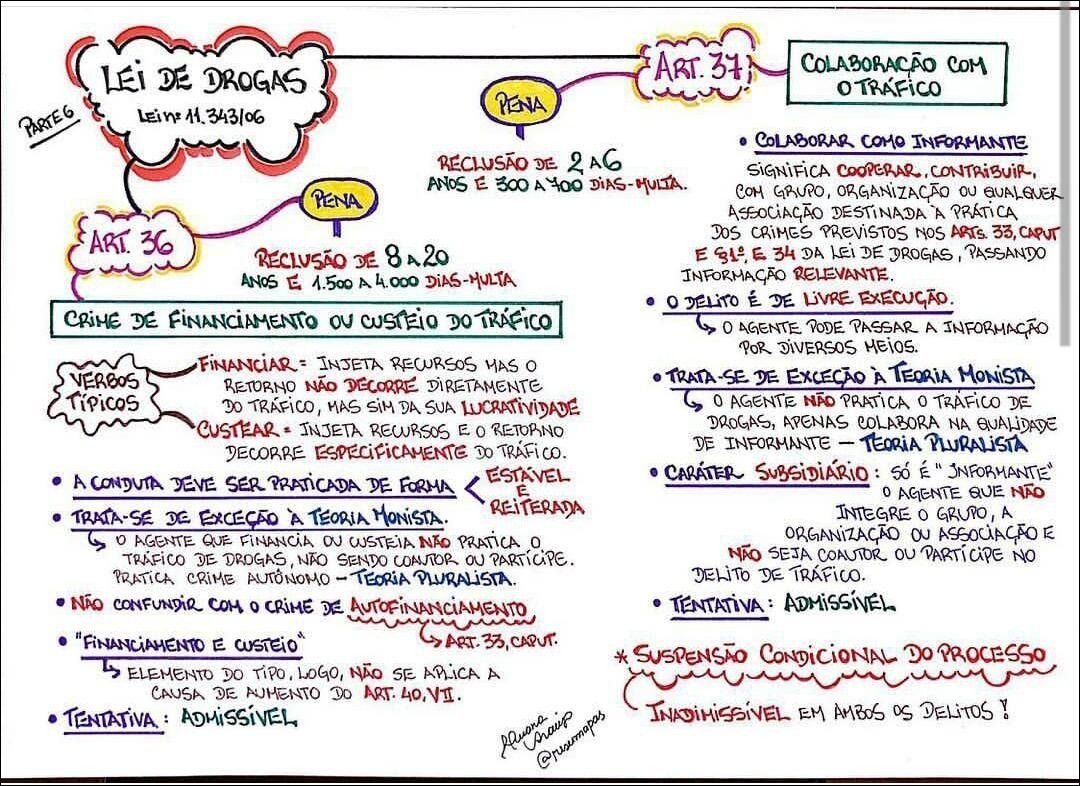 LEI DE DROGAS
LEI Nº 11.343/06
PARTE 6
ART. 36
PENA
RECLUSÃO DE 8 A 20
ANOS E 1.500 A 4.000 DIAS-MULTA
CRIME DE FINANCIAMENTO OU CUSTEIO DO TRÁFICO
VERBOS
TÍPICOS
FINANCIAR = INJETA RECURSOS MAS O
RETORNO NÃO DECORRE DIRETAMENTE
DO TRÁFICO, MAS SIM DA SUA LUCRATIVIDADE
CUSTEAR = INJETA RECURSOS E O RETORNO
DECORRE ESPECIFICAMENTE DO TRÁFICO.
• A CONDUTA DEVE SER PRATICADA DE FORMA
ESTÁVEL
E
REITERADA
• TRATA-SE DE EXCEÇÃO À TEORIA MONISTA.
O AGENTE QUE FINANCIA OU CUSTEIA NÃO PRATICA O
TRÁFICO DE DROGAS, NÃO SENDO COAUTOR OU PARTÍCIPE.
PRATICA CRIME AUTÔNOMO – TEORIA PLURALISTA.
• NÃO CONFUNDIR COM O CRIME DE AUTOFINANCIAMENTO
ART. 33, CAPUT.
• "FINANCIAMENTO E CUSTEIO"
ELEMENTO DO TIPO, LOGO, NÃO SE APLICA A
CAUSA DE AUMENTO DO ART. 40, VII.
• TENTATIVA: ADMISSÍVEL
ART. 37
COLABORAÇÃO COM
O TRÁFICO
PENA
RECLUSÃO DE 2 A 6
ANOS E 300 A 700 DIAS-MULTA.
• COLABORAR COMO INFORMANTE
SIGNIFICA COOPERAR, CONTRIBUIR,
COM GRUPO, ORGANIZAÇÃO OU QUALQUER
ASSOCIAÇÃO DESTINADA À PRÁTICA
DOS CRIMES PREVISTOS NOS ARTS. 33, CAPUT
E §1º, E 34 DA LEI DE DROGAS, PASSANDO
INFORMAÇÃO RELEVANTE.
• O DELITO É DE LIVRE EXECUÇÃO.
O AGENTE PODE PASSAR A INFORMAÇÃO
POR DIVERSOS MEIOS.
• TRATA-SE DE EXCEÇÃO À TEORIA MONISTA
O AGENTE NÃO PRATICA O TRÁFICO DE
DROGAS, APENAS COLABORA NA QUALIDADE
DE INFORMANTE – TEORIA PLURALISTA
• CARÁTER SUBSIDIÁRIO: SÓ É "INFORMANTE"
O AGENTE QUE NÃO
INTEGRE O GRUPO, A
ORGANIZAÇÃO OU ASSOCIAÇÃO E
NÃO SEJA COAUTOR OU PARTÍCIPE NO
DELITO DE TRÁFICO.
• TENTATIVA: ADMISSÍVEL
* SUSPENSÃO CONDICIONAL DO PROCESSO
INADIMISSÍVEL EM AMBOS OS DELITOS!
Araujo
@resumapas